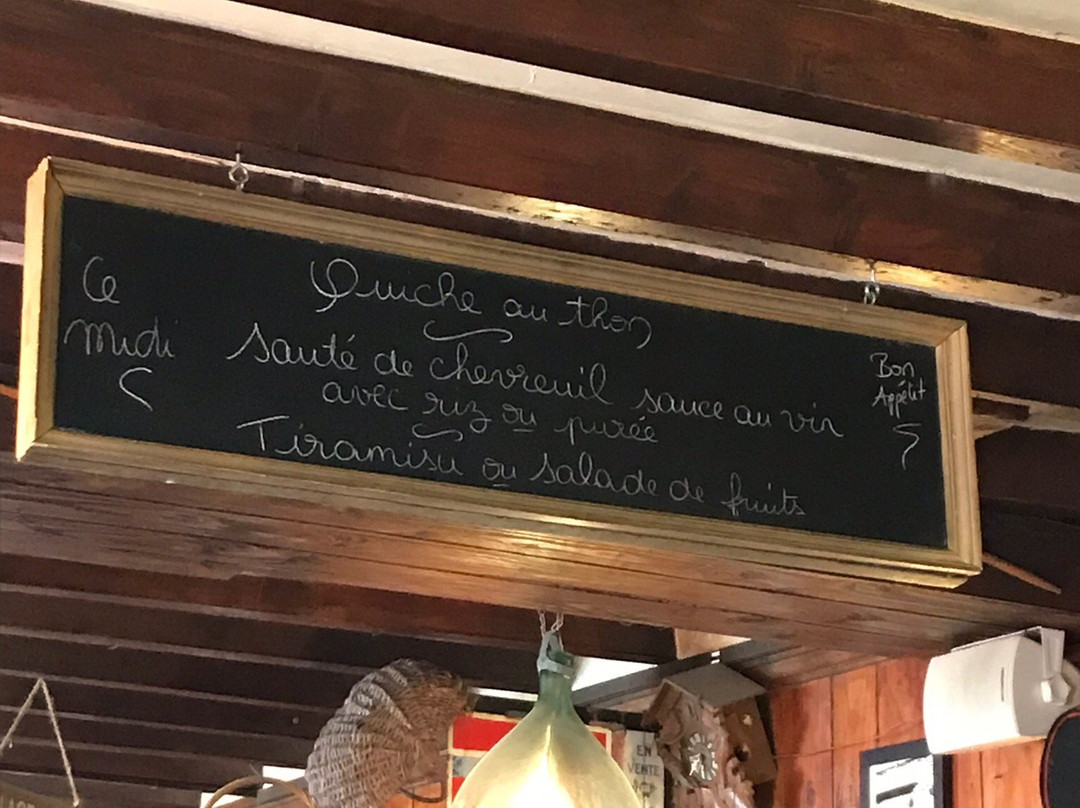 Ce
Midi
Quiche au thon
Sauté de chevreuil sauce au vin
avec riz ou purée
Tiramisu ou salade de fruits
Bon
Appétit
EN
VENTE